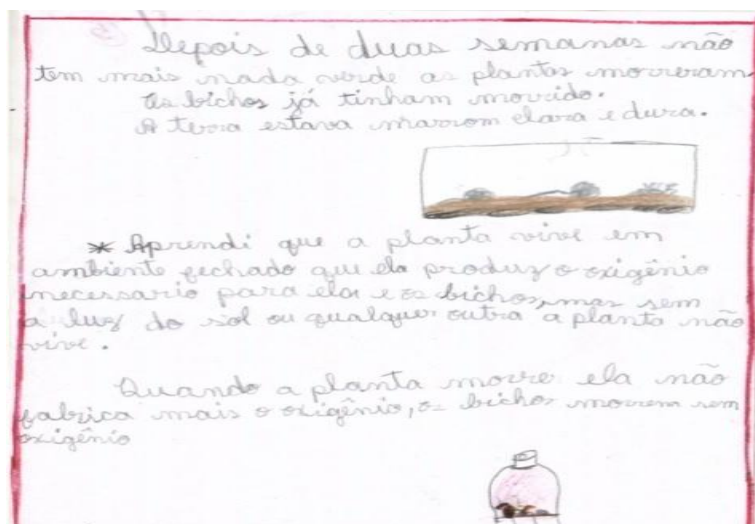 Depois de duas semanas não
tem mais nada verde as plantas morreram.
Os bichos já tinham morrido.
A terra estava marrom clara e dura.
* Aprendi que a planta vive em
ambiente fechado que ela produz o oxigênio
necessario para ela e os bichos, mas sem
a luz do sol ou qualquer outra a planta não
vive.
Quando a planta morre ela não
fabrica mais o oxigênio, os bichos morrem sem
oxigênio